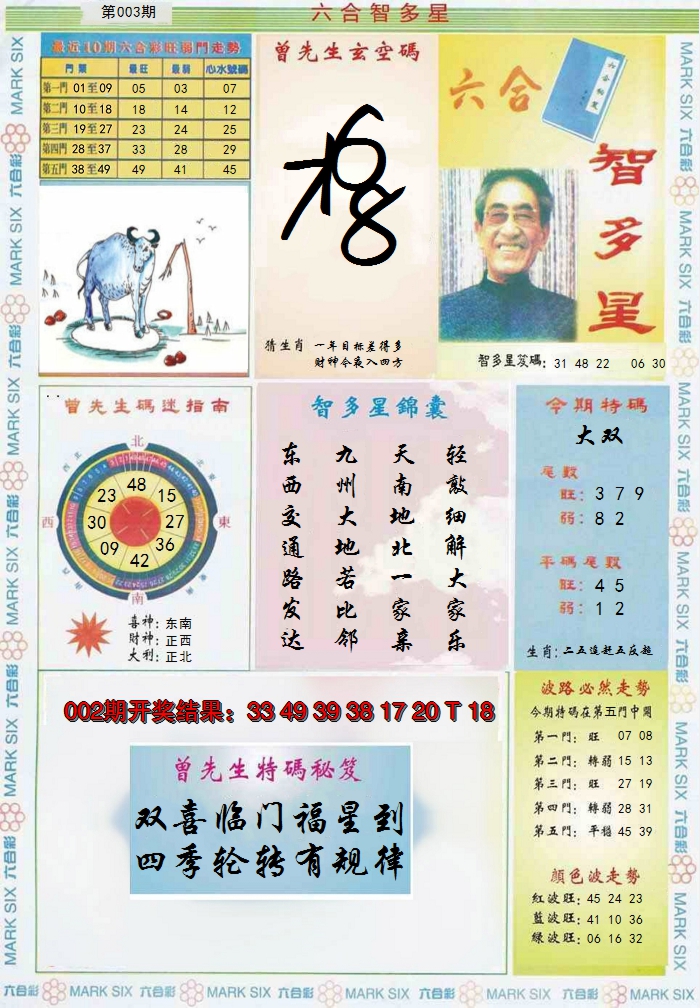 第003期
六合智多星
最近10期六合彩旺弱門走勢
門類 最旺 最弱 心水號碼
第一門 01至09 05 03 07
第二門 10至18 18 14 12
第三門 19至27 23 24 25
第四門 28至37 33 28 29
第五門 38至49 49 41 45
曾先生玄空碼
猜生肖 一年目标差得多
财神今夜入四方
六合
六合秘笈
智多星
智多星笈碼: 31 48 22 06 30
曾先生碼迷指南
北
西北
東北
48
23 15
西 30 27 東
09 36
42
西南
東南
南
喜神: 东南
財神: 正西
大利: 正北
智多星錦囊
轻敲细解大家乐
天南地北一家亲
九州大地若比邻
东西交通路发达
今期特碼
大双
尾數
旺: 3 7 9
弱: 8 2
平碼尾數
旺: 4 5
弱: 1 2
生肖: 二五追赶五反超
002期开奖结果: 33 49 39 38 17 20 T 18
曾先生特碼秘笈
双喜临门福星到
四季轮转有规律
波路必然走勢
今期特碼在第五門中開
第一門: 旺 07 08
第二門: 轉弱 15 13
第三門: 旺 27 19
第四門: 轉弱 28 31
第五門: 平穩 45 39
顔色波走勢
紅波旺: 45 24 23
藍波旺: 41 10 36
綠波旺: 06 16 32
六合彩 MARK SIX 六合彩 MARK SIX 六合彩 MARK SIX 六合彩 MARK SIX 六合彩 MARK SIX 六合彩